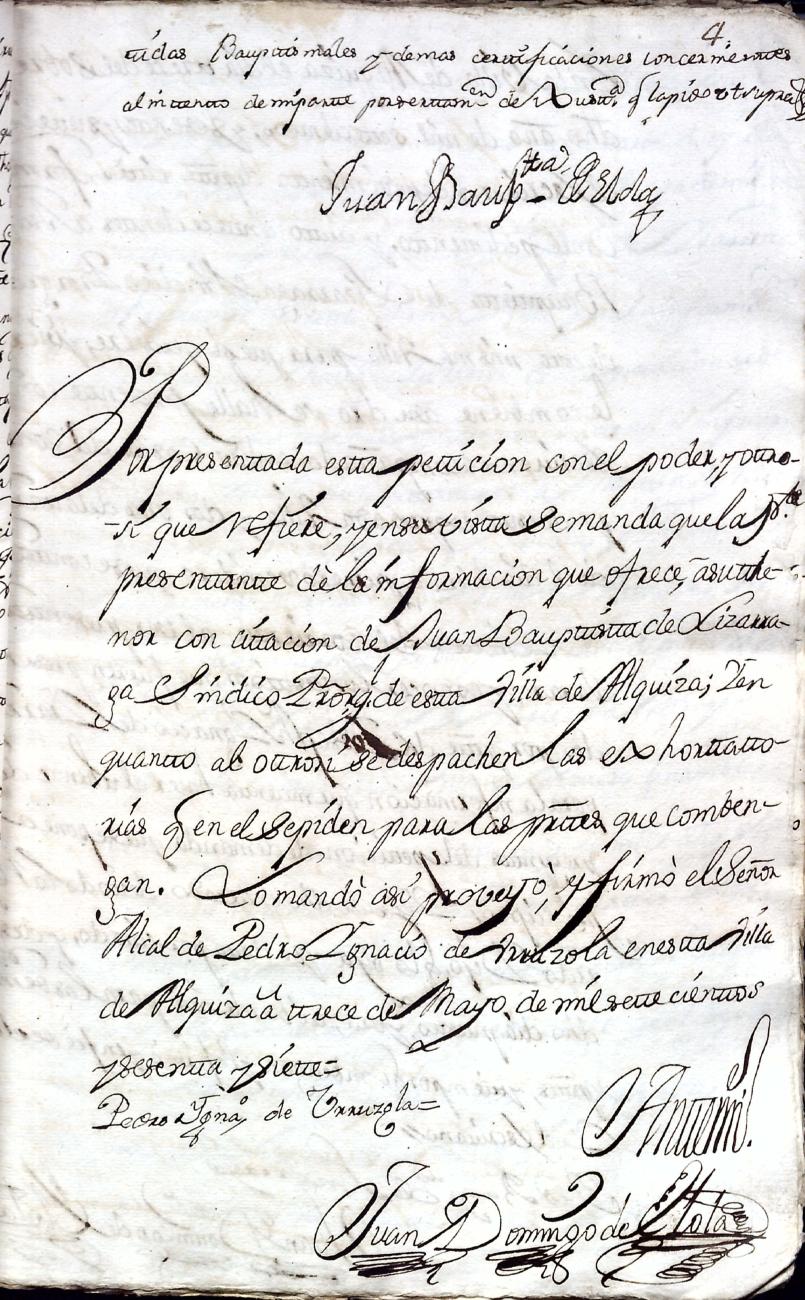 4.
tidas Bauptismales y demas certificaciones concernientes
al intento de mi parte por ser tam.en de Justa q la pido vt supra
Juan Baup.ta Elola
Por presenttada estta petticion con el poder, y ottro-
si que refiere, y en su vistta se manda que la p.te
presenttantte dè la informacion que ofrece, à su the-
nor con cittacion de Juan Bauptistta de Lizarra-
ga Sindico Pror, g. de estta Villa de Alquiza; Y en
quantto al ottrosi se despachen las exhortatto-
rias q en el se piden para las parttes que comben-
gan. Lo mandò asi proveyò, y firmò el Señor
Alcalde Pedro Ygnacio de Vrruzola en estta Villa
de Alquiza à ttrece de Mayo de mil sette cienttos
y sesentta y siette=
Pedro Ygnaº de Vrruzola=
Anttemi.
Juan Domingo de